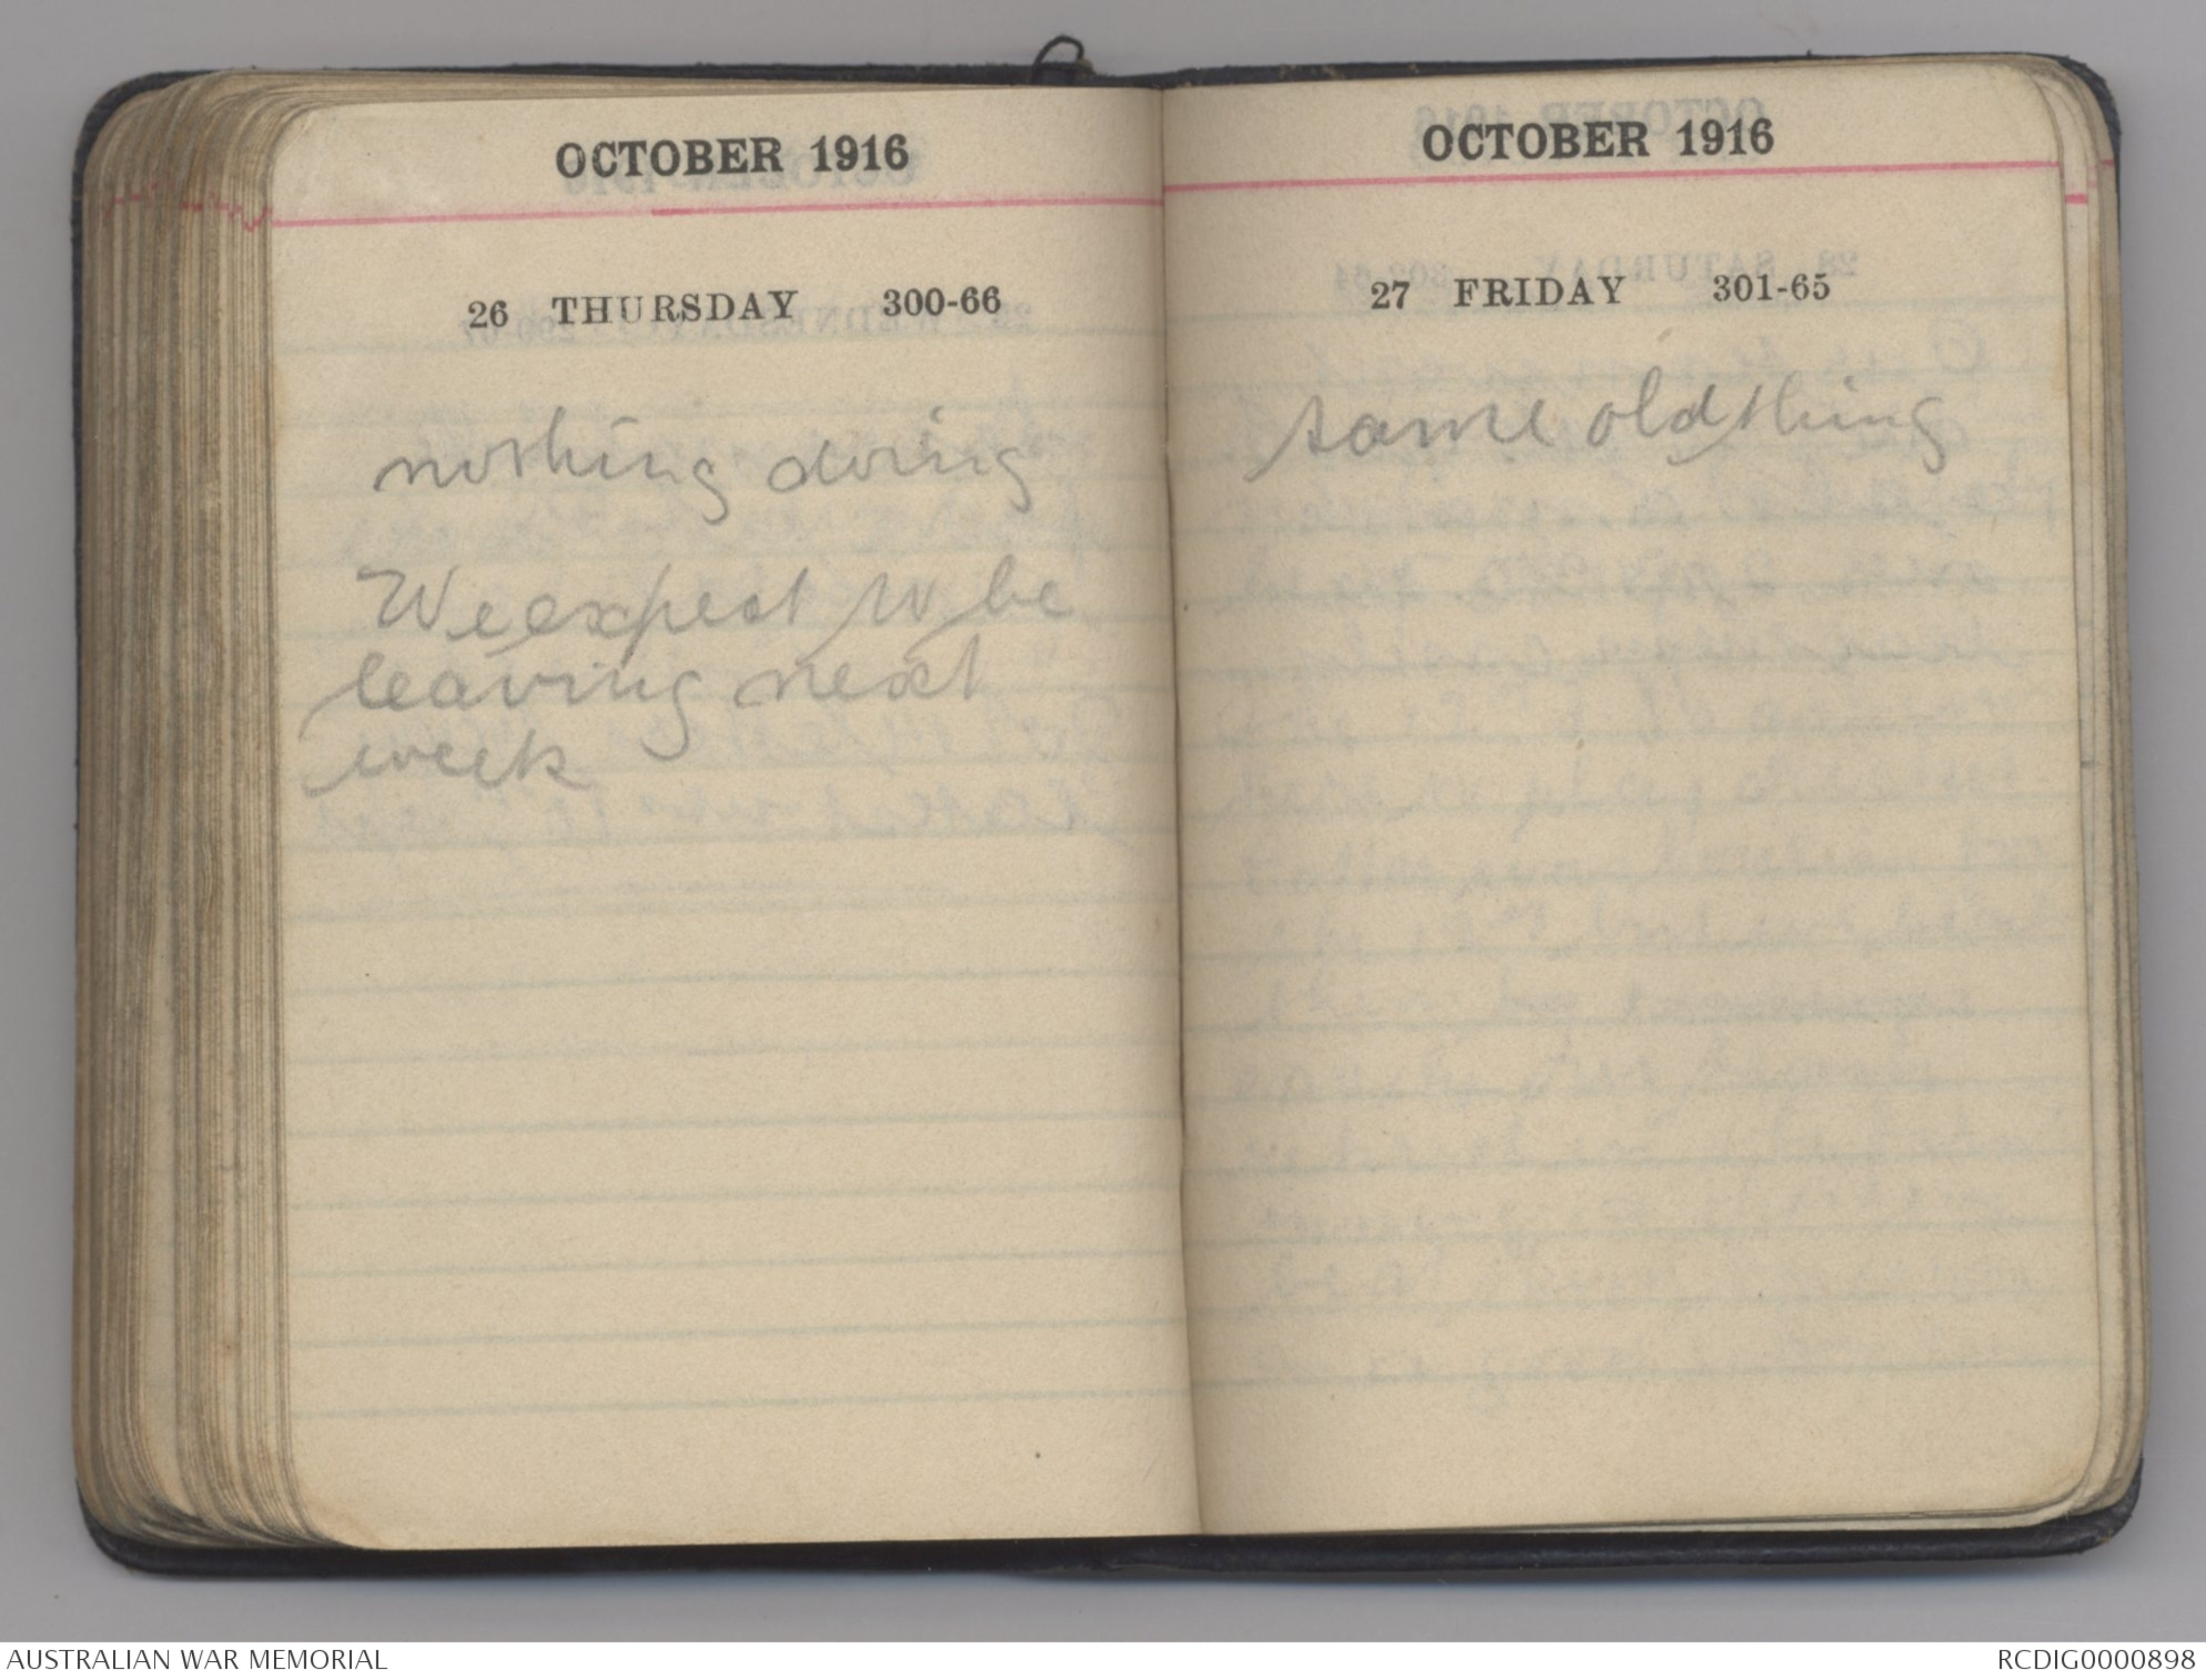 OCTOBER 1916
26 THURSDAY 300-66
nothing doing
We expect to be
leaving next
week
OCTOBER 1916
27 FRIDAY 301-65
same old thing
AUSTRALIAN WAR MEMORIAL
RCDIG0000898